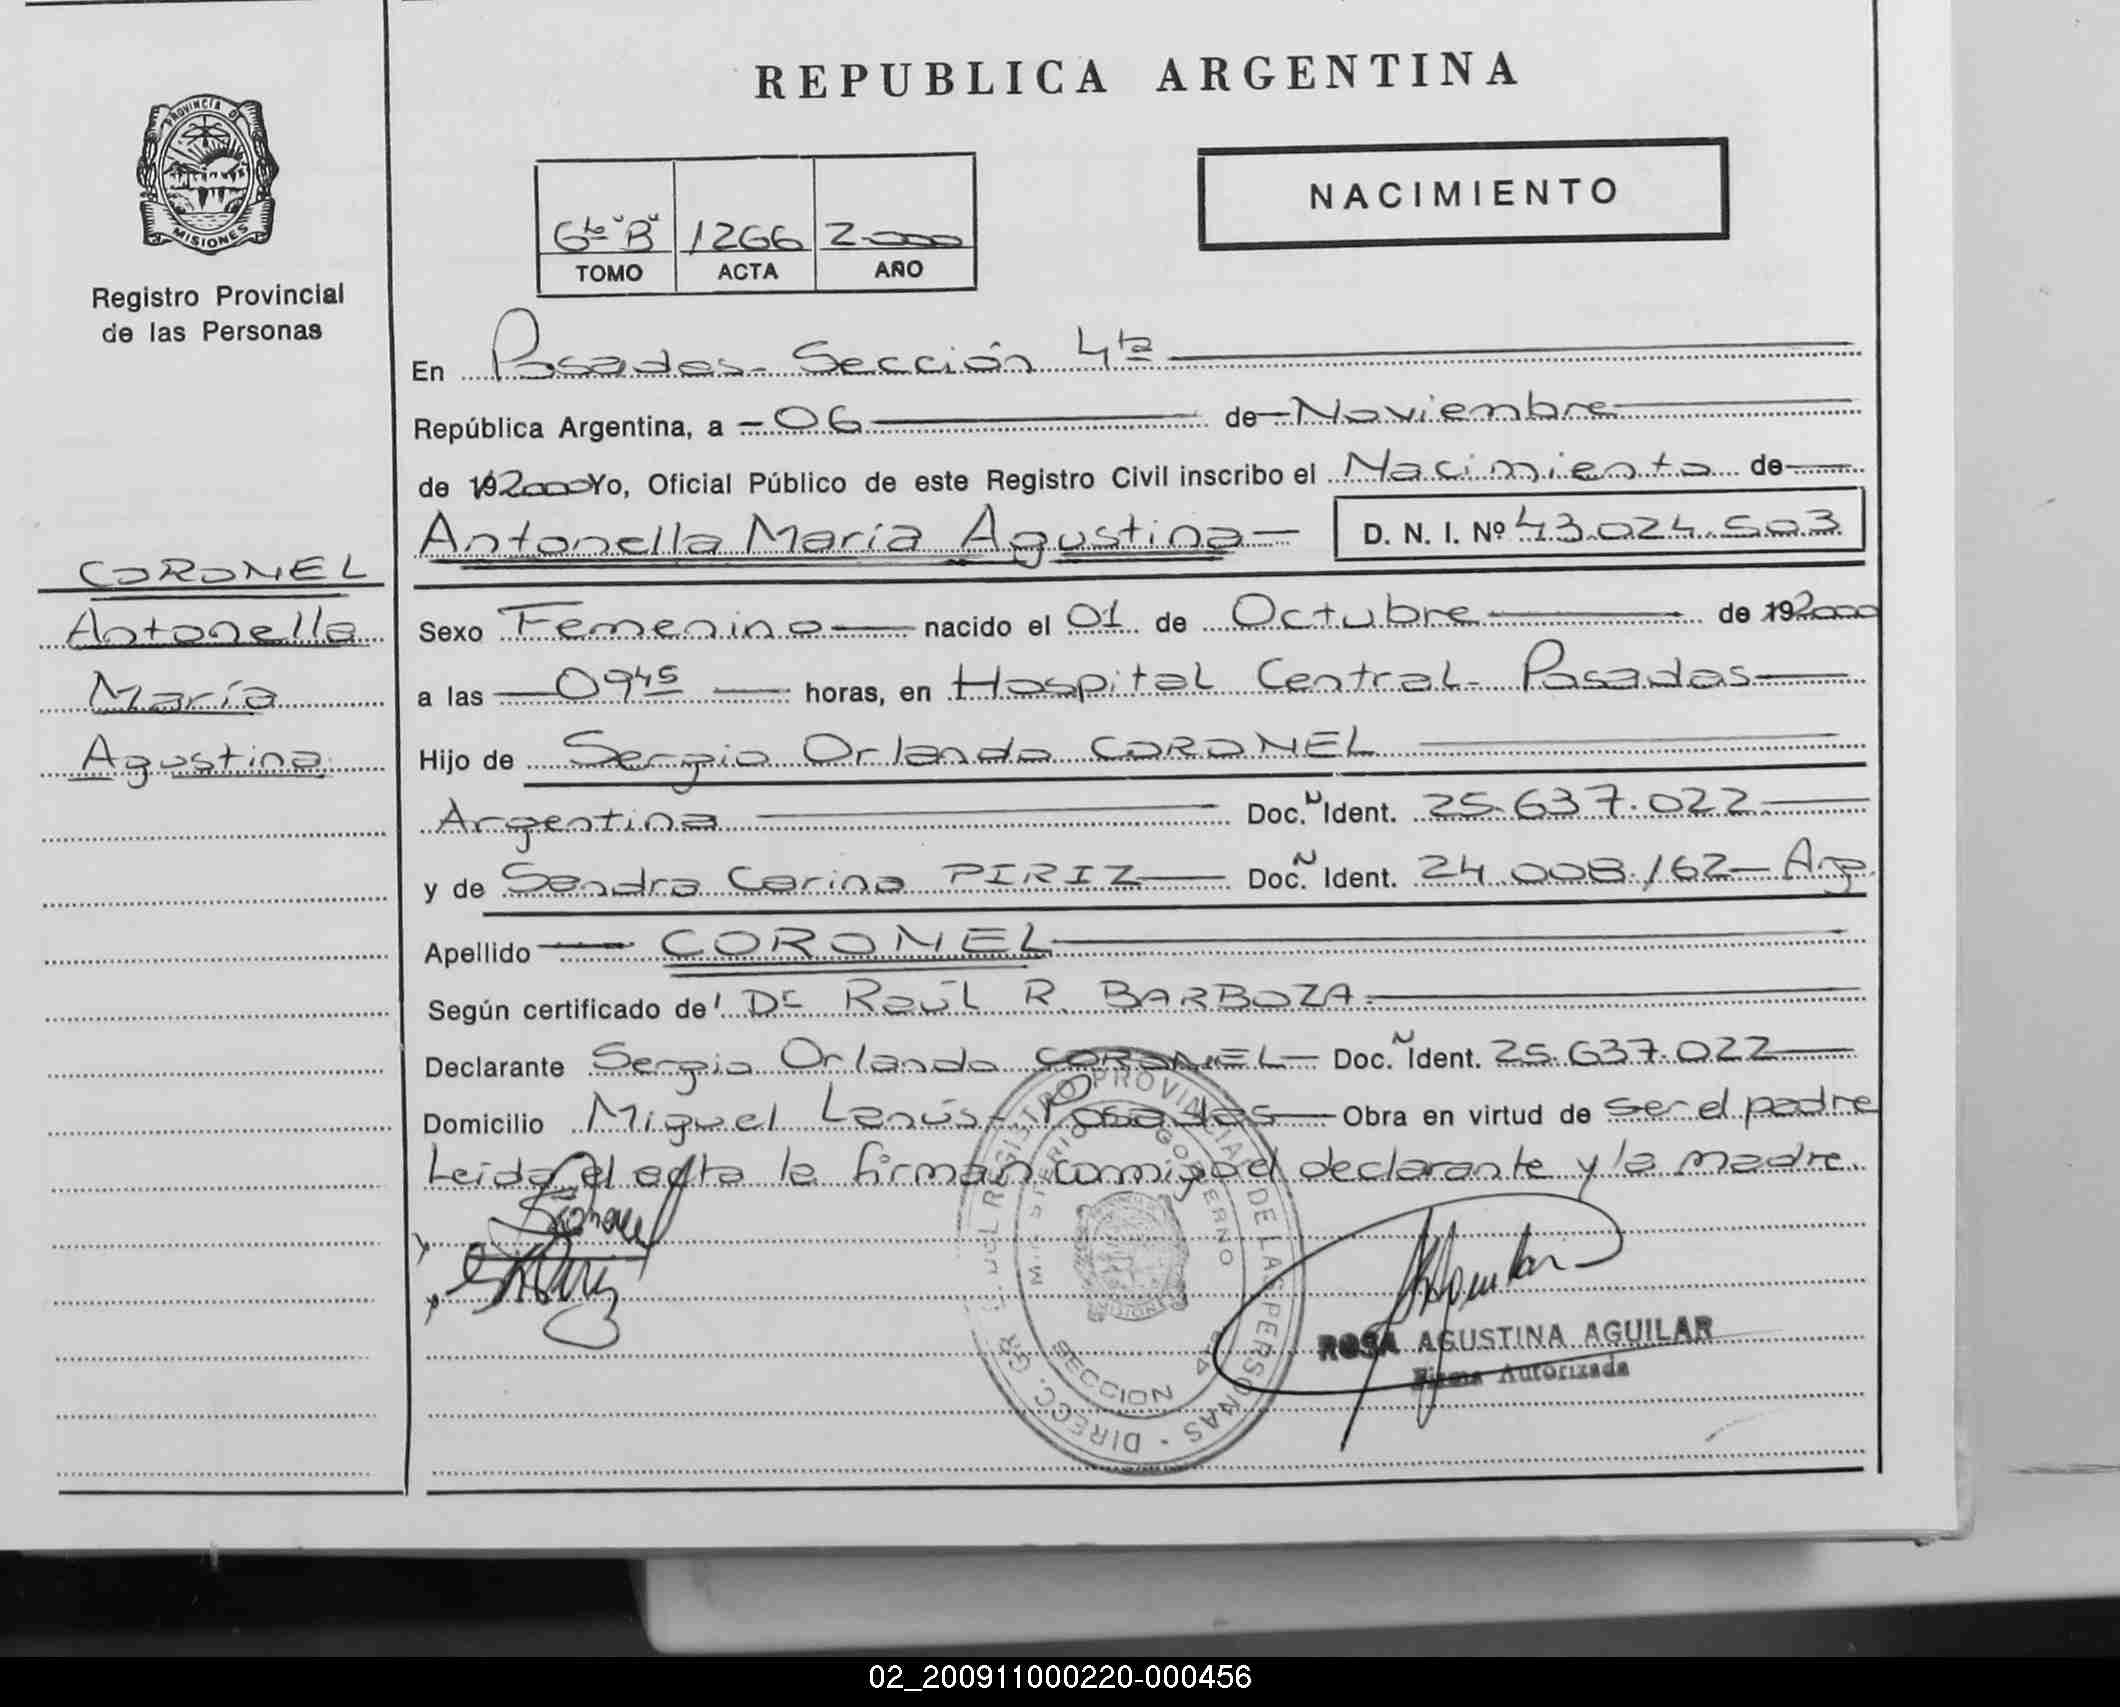 REPUBLICA ARGENTINA
PROVINCIA D
MISIONES
Registro Provincial
de las Personas
NACIMIENTO
6to "B" 1266 2000
TOMO ACTA AÑO
En Posadas - Sección 4ta
República Argentina, a - 06 de Noviembre
de 192000 Yo, Oficial Público de este Registro Civil inscribo el Nacimiento de
Antonella María Agustina D. N. I. Nº 43.024.503
CORONEL
Antonella
María
Agustina
Sexo Femenino nacido el 01 de Octubre de 192000
a las 09 45 horas, en Hospital Central - Posadas
Hijo de Sergio Orlando CORONEL
Argentina Doc. Ñ Ident. 25.637.022
y de Sandra Carina PIRIZ Doc. Ñ Ident. 24.008.162 - Arg.
Apellido CORONEL
Según certificado de Dr Raúl R. BARBOZA
Declarante Sergio Orlando CORONEL Doc. Ñ Ident. 25.637.022
Domicilio Miguel Lanús - Posadas Obra en virtud de ser el padre
Leida el acta la firman conmigo el declarante y la madre.
DIRECC. GRAL REGISTRO PROVINCIAL DE LAS PERSONAS
MINISTERIO DE GOBIERNO
MISIONES
SECCION 4TA
ROSA AGUSTINA AGUILAR
Firma Autorizada
02_200911000220-000456